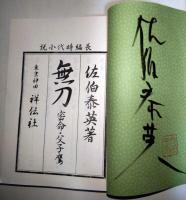 長編時代小説
佐伯泰英著
無刀
密命・父子鷹
東京神田
祥伝社
佐伯泰英